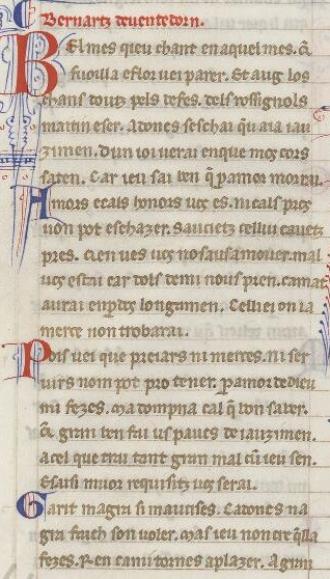 Bernartz deuentedorn.
BEl mes queu chant en aquel mes. q̃
fuoilla e flor uei parer. Et aug los
chans doutz pels defes. dels rossignols
matin e ser. Adoncs seschai qu aia iau
zimen. Dun ioi uerai en que mos cors
saten. Car ieu sai ben q̃ p amor morrai.
Amors e cals honors uos es. ni cals pros
uon pot eschazer. Sauzietz celluj
pres. uas uos no saus a mouer. mal
uos estai car dols de mi nous pren. camat
aurai en perdos longamen. Celliei on ia
merce non trobarai.
Pois uei que preiars ni merces. ni ser
uirs nom pot pro tener. p amor de dieu
mi fezes. ma dompna cal q̃ bon saber.
q̃ gran ben fai us paucs de iauzimen.
a cel que trai tant gran mal cū ieu sen.
E saisi muor requisitz uos serai.
Garit magra si maucises. Cadoncs na
gra faich son uoler. mas ieu non cre q̃lla
fezes. Ren cami tornes a plazer. A gran